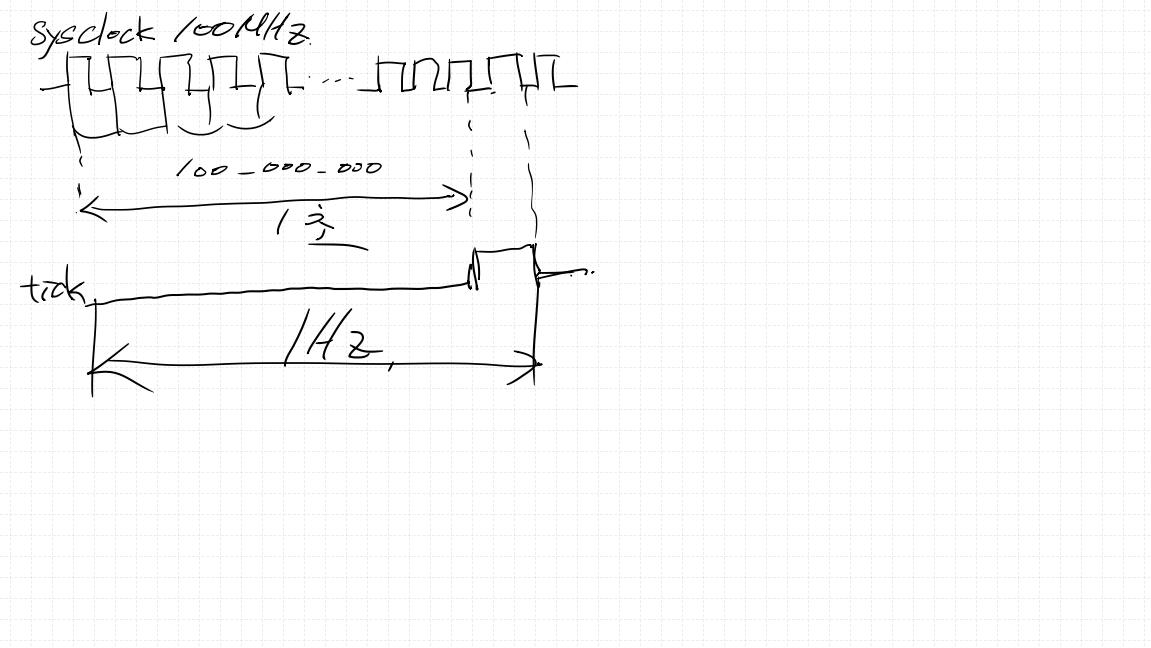 sysclock 100MHz.
100_000_000
1초
tick
1Hz